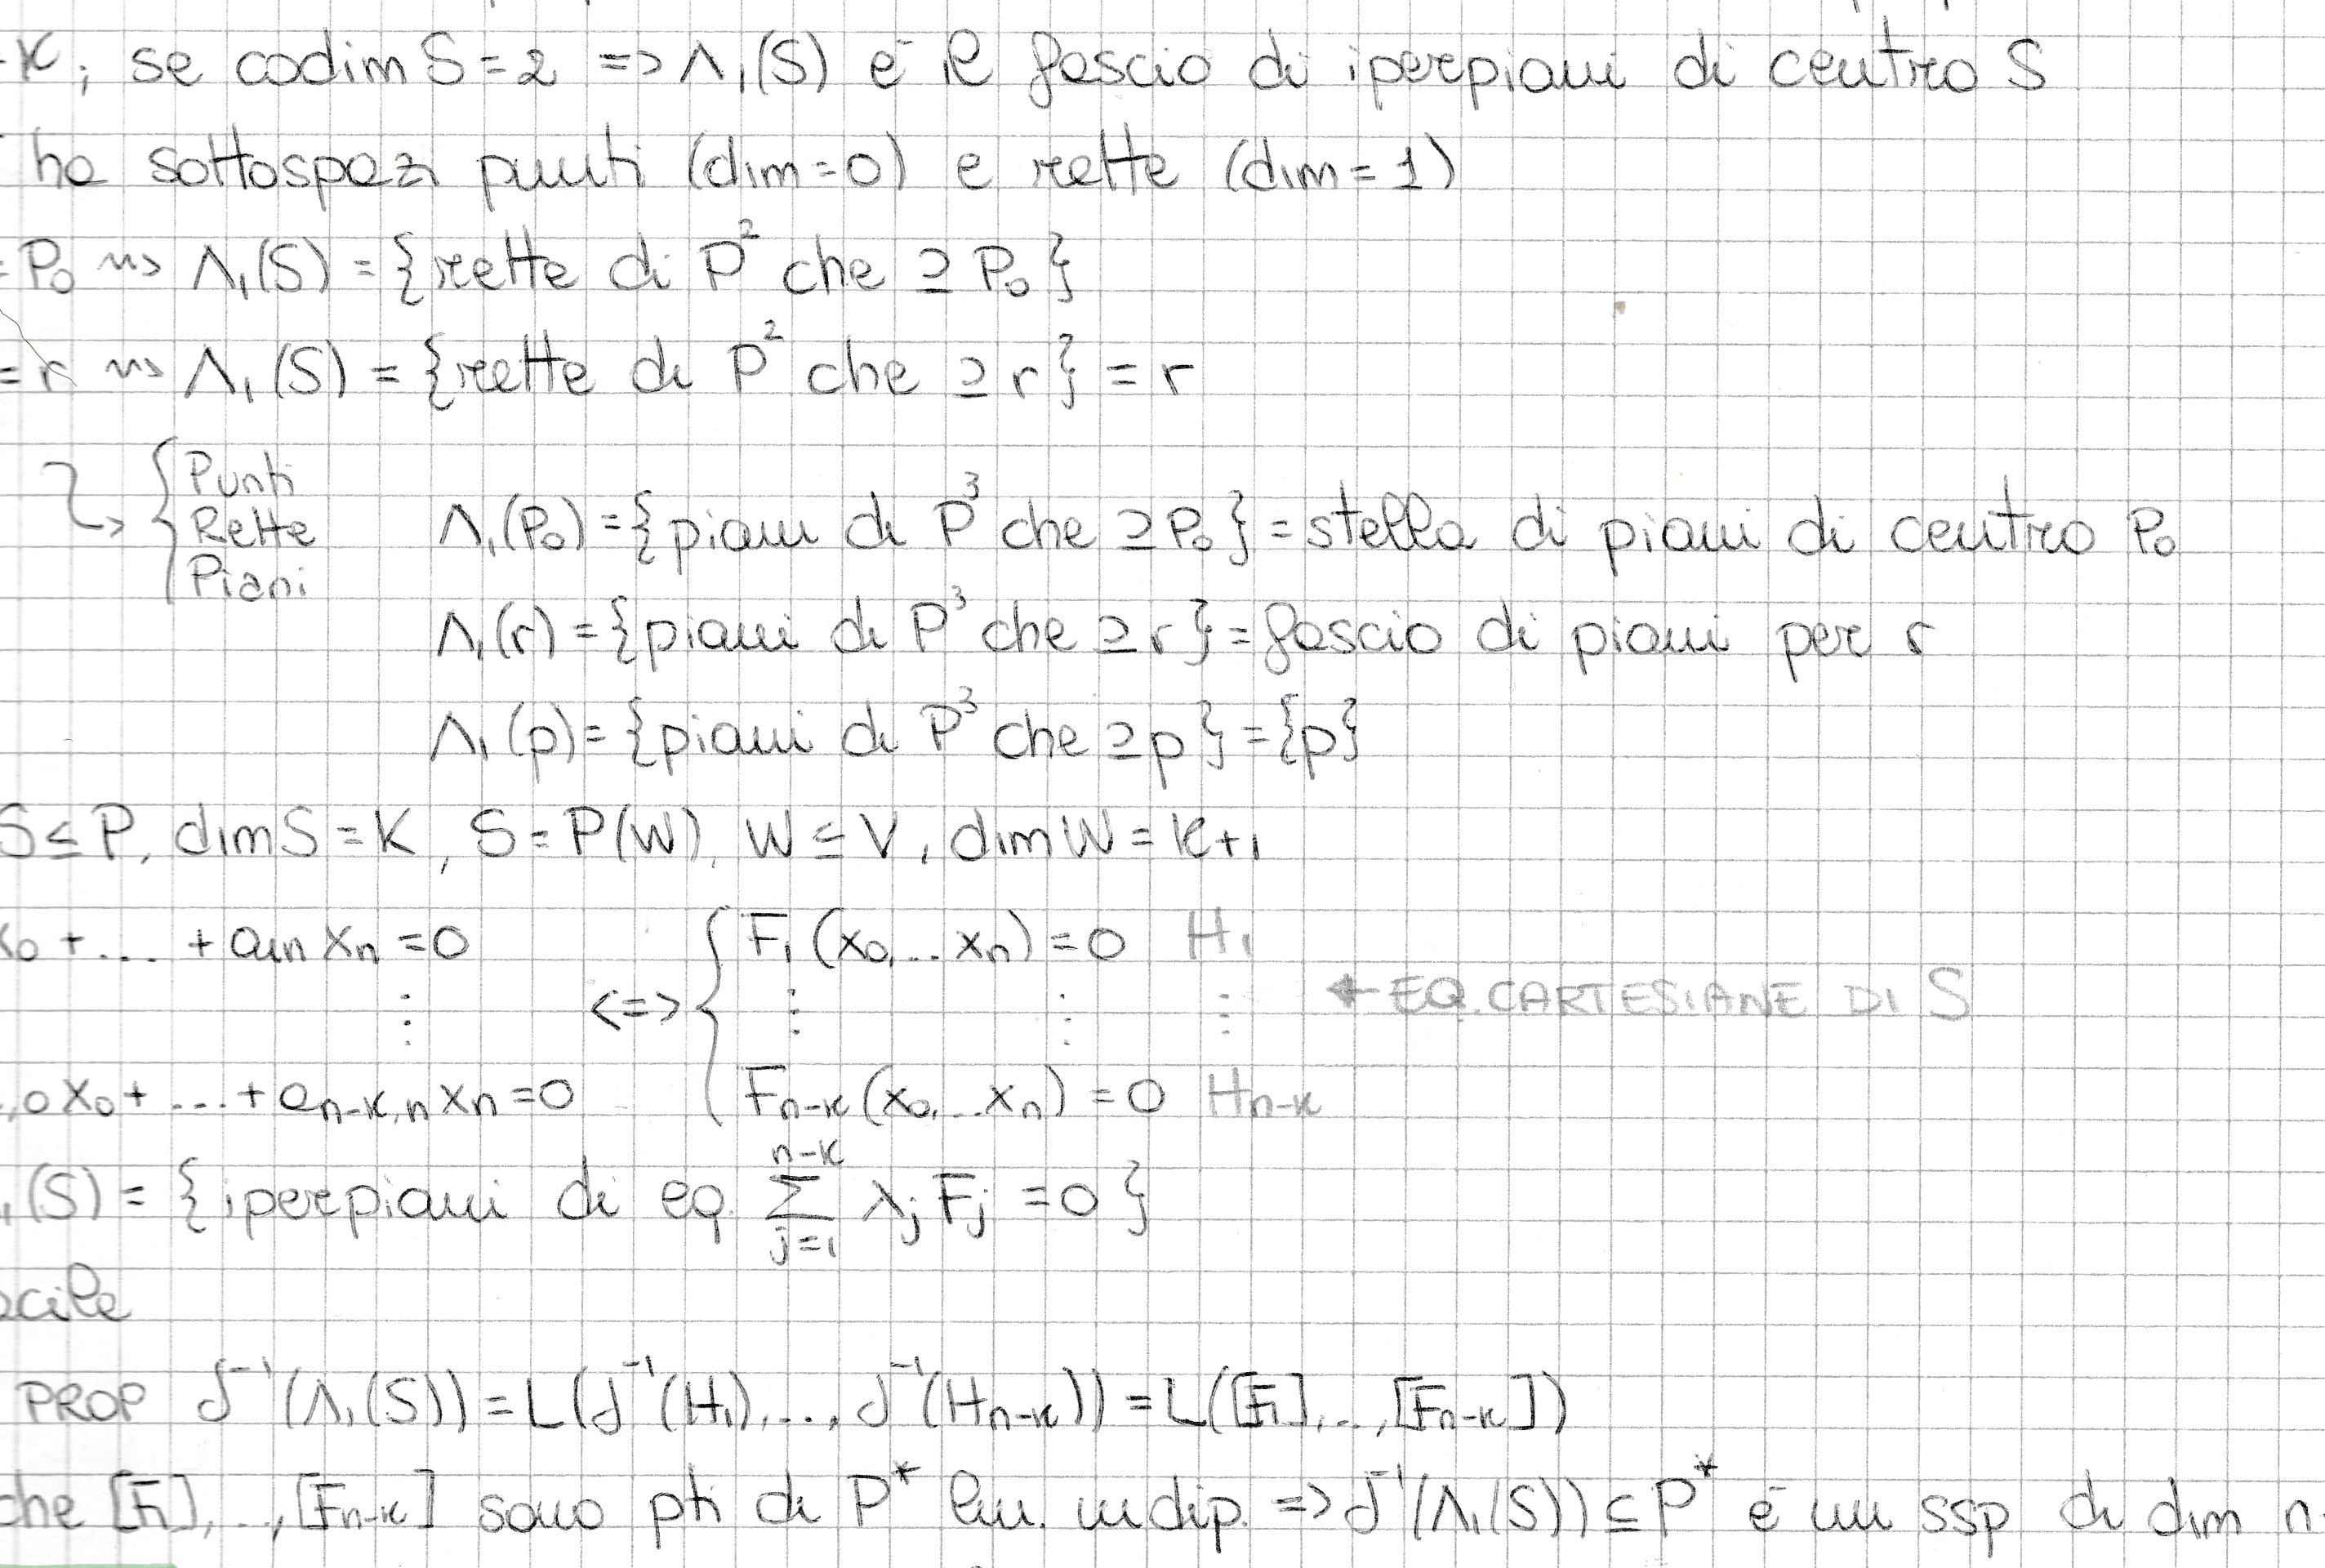 -K; se codim S=2 => Λ₁(S) è il fascio di iperpiani di centro S
ha sottospazi punti (dim=0) e rette (dim=1)
=P₀ ⇝ Λ₁(S) = {rette di P² che ⊇ P₀}
=r ⇝ Λ₁(S) = {rette di P² che ⊇ r} = r
↳ { Punti
Rette Λ₁(P₀) = {piani di P³ che ⊇ P₀} = stella di piani di centro P₀
Piani
Λ₁(r) = {piani di P³ che ⊇ r} = fascio di piani per r
Λ₁(p) = {piani di P³ che ⊇ p} = {p}
S ≤ P, dim S = K, S = P(W), W ≤ V, dim W = K+1
x₀ + ... + a₁ₙ xₙ = 0 { F₁(x₀,..xₙ) = 0 H₁
⋮ <=> ⋮ ⋮ ⋮ ← EQ. CARTESIANE DI S
,0 x₀ + ... + a_{n-k,n} xₙ = 0 F_{n-k}(x₀,...xₙ) = 0 H_{n-k}
₁(S) = {iperpiani di eq. ∑_{j=1}^{n-k} λⱼFⱼ = 0}
acile
PROP δ⁻¹(Λ₁(S)) = L(δ⁻¹(H₁),..., δ⁻¹(H_{n-k})) = L([F₁],..,[F_{n-k}])
che [F₁],..,[F_{n-k}] sono pti di P* lin. indip. => δ⁻¹(Λ₁(S)) ⊆ P* è un ssp di dim n-